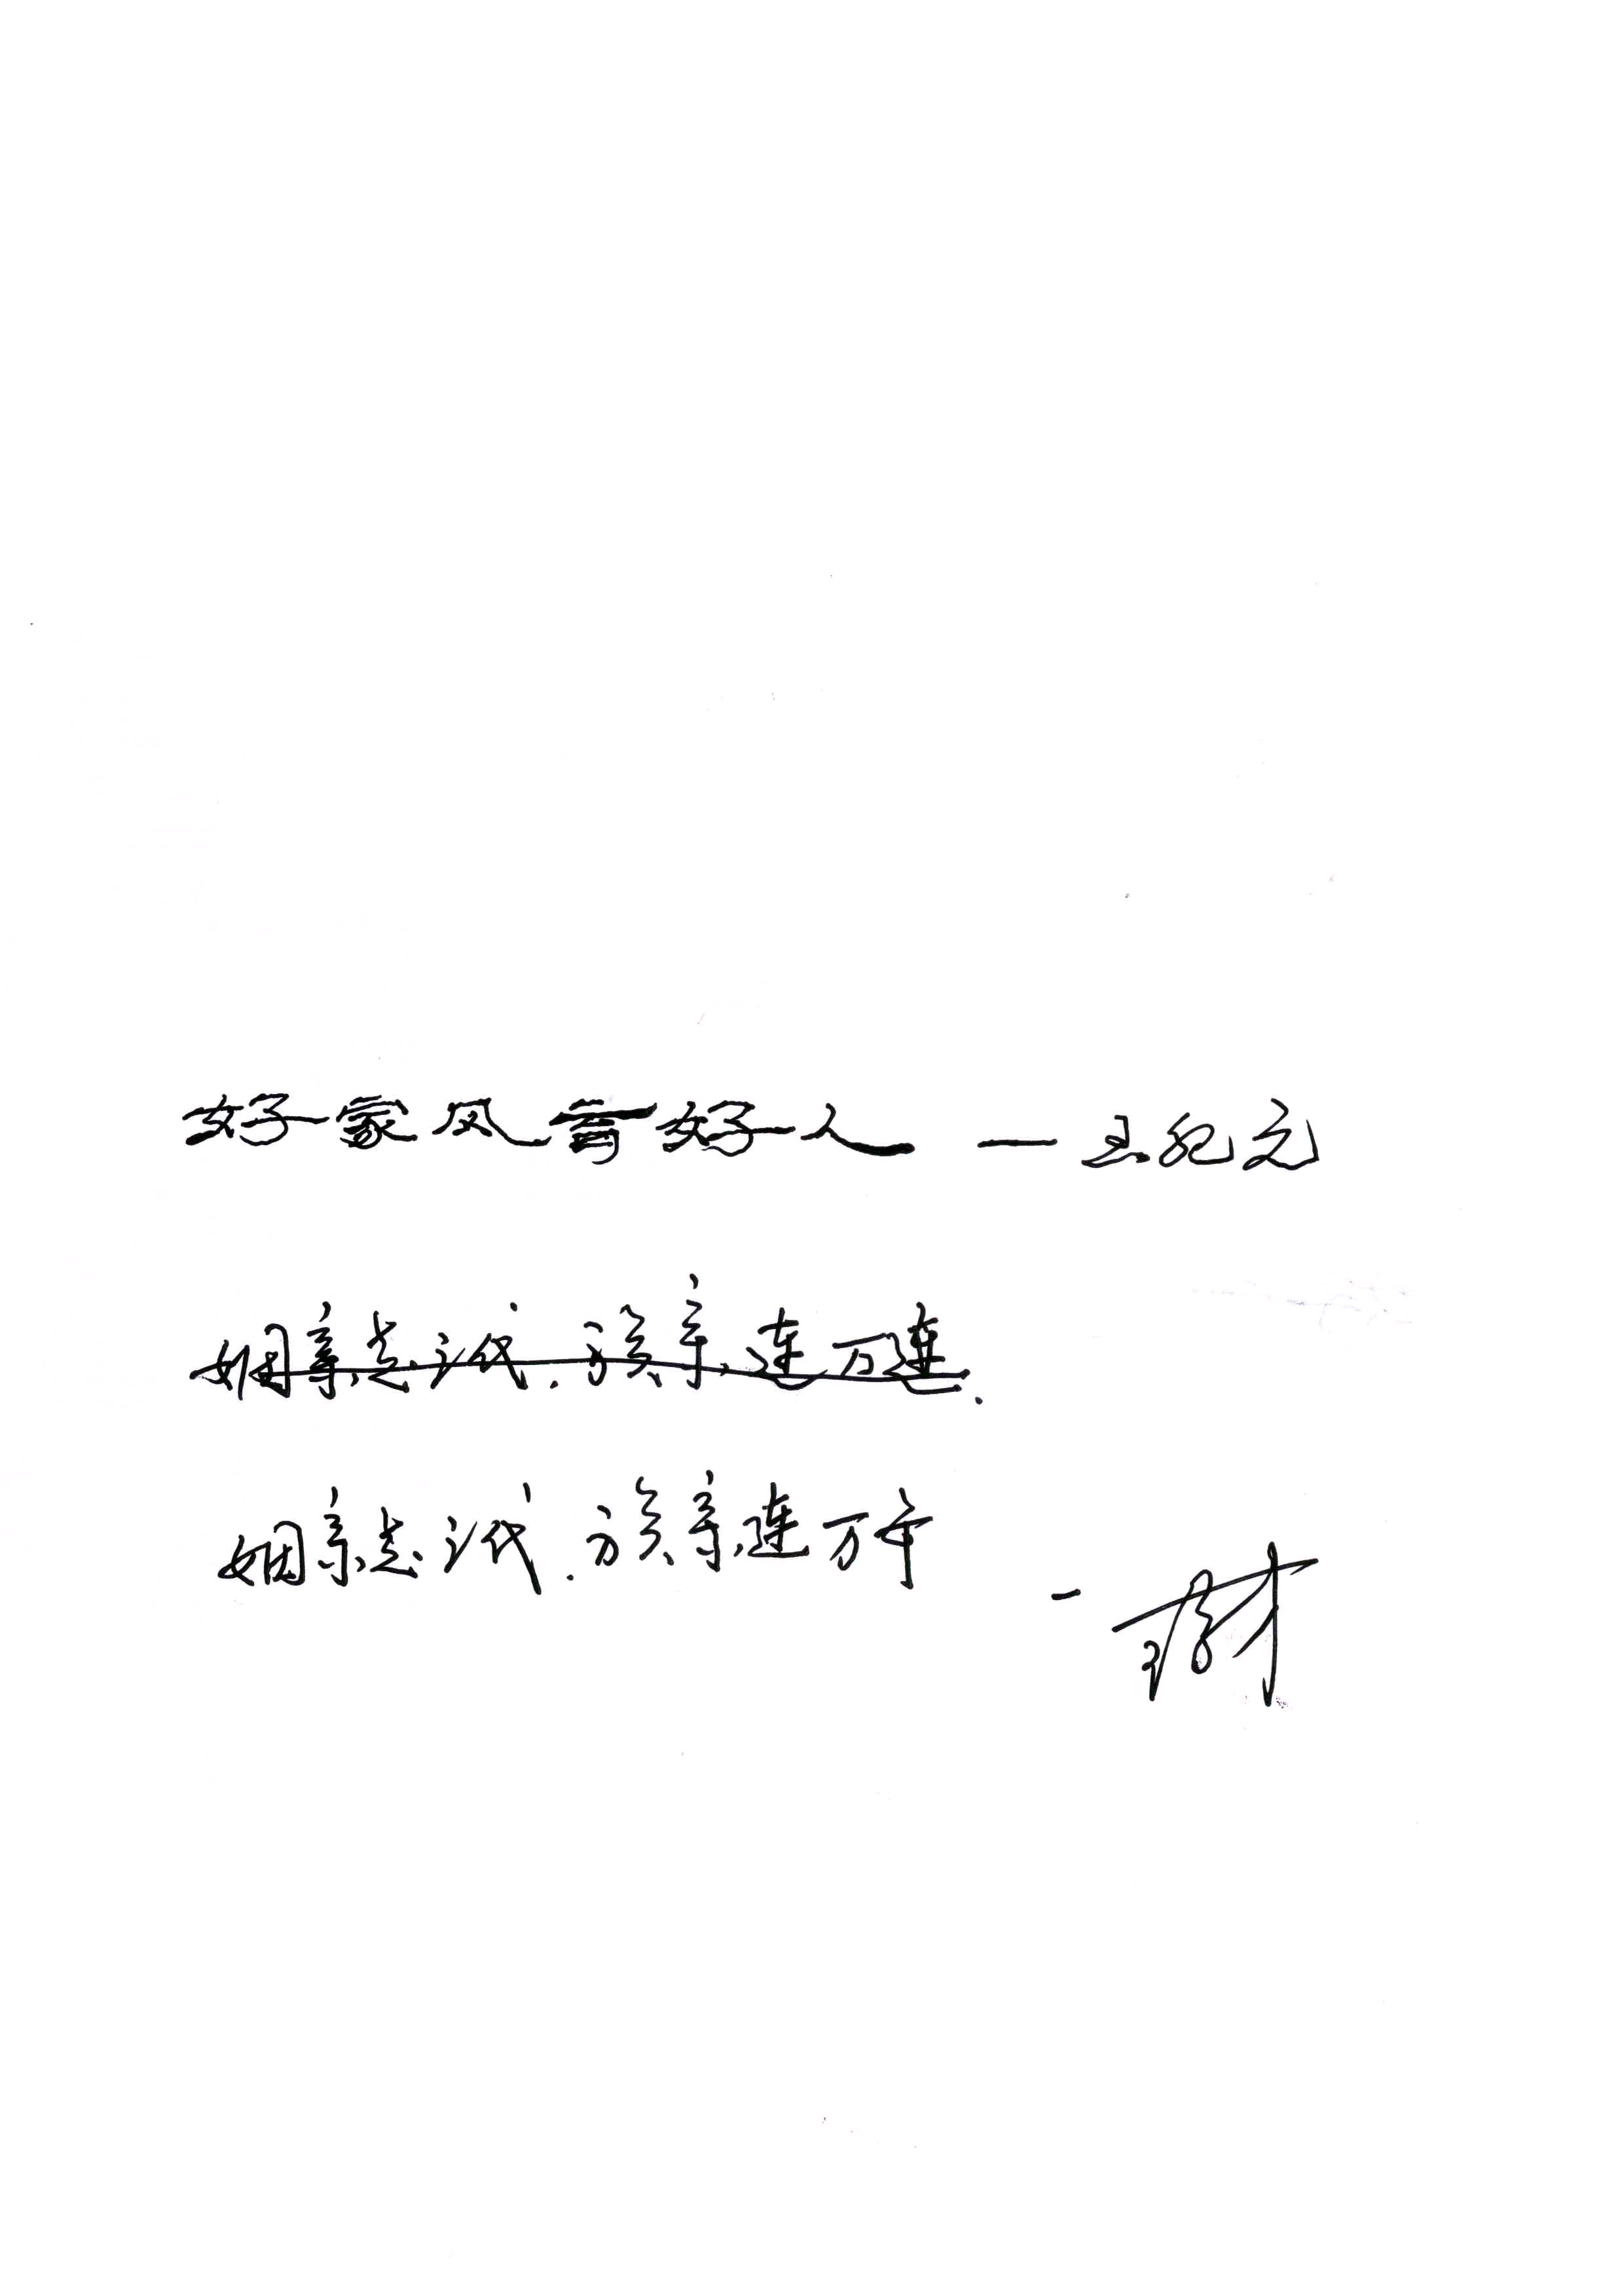 好家风育好人 — 王纪元
姻亲志 代.族亲连万连.
姻亲志 代.族亲连万年
—